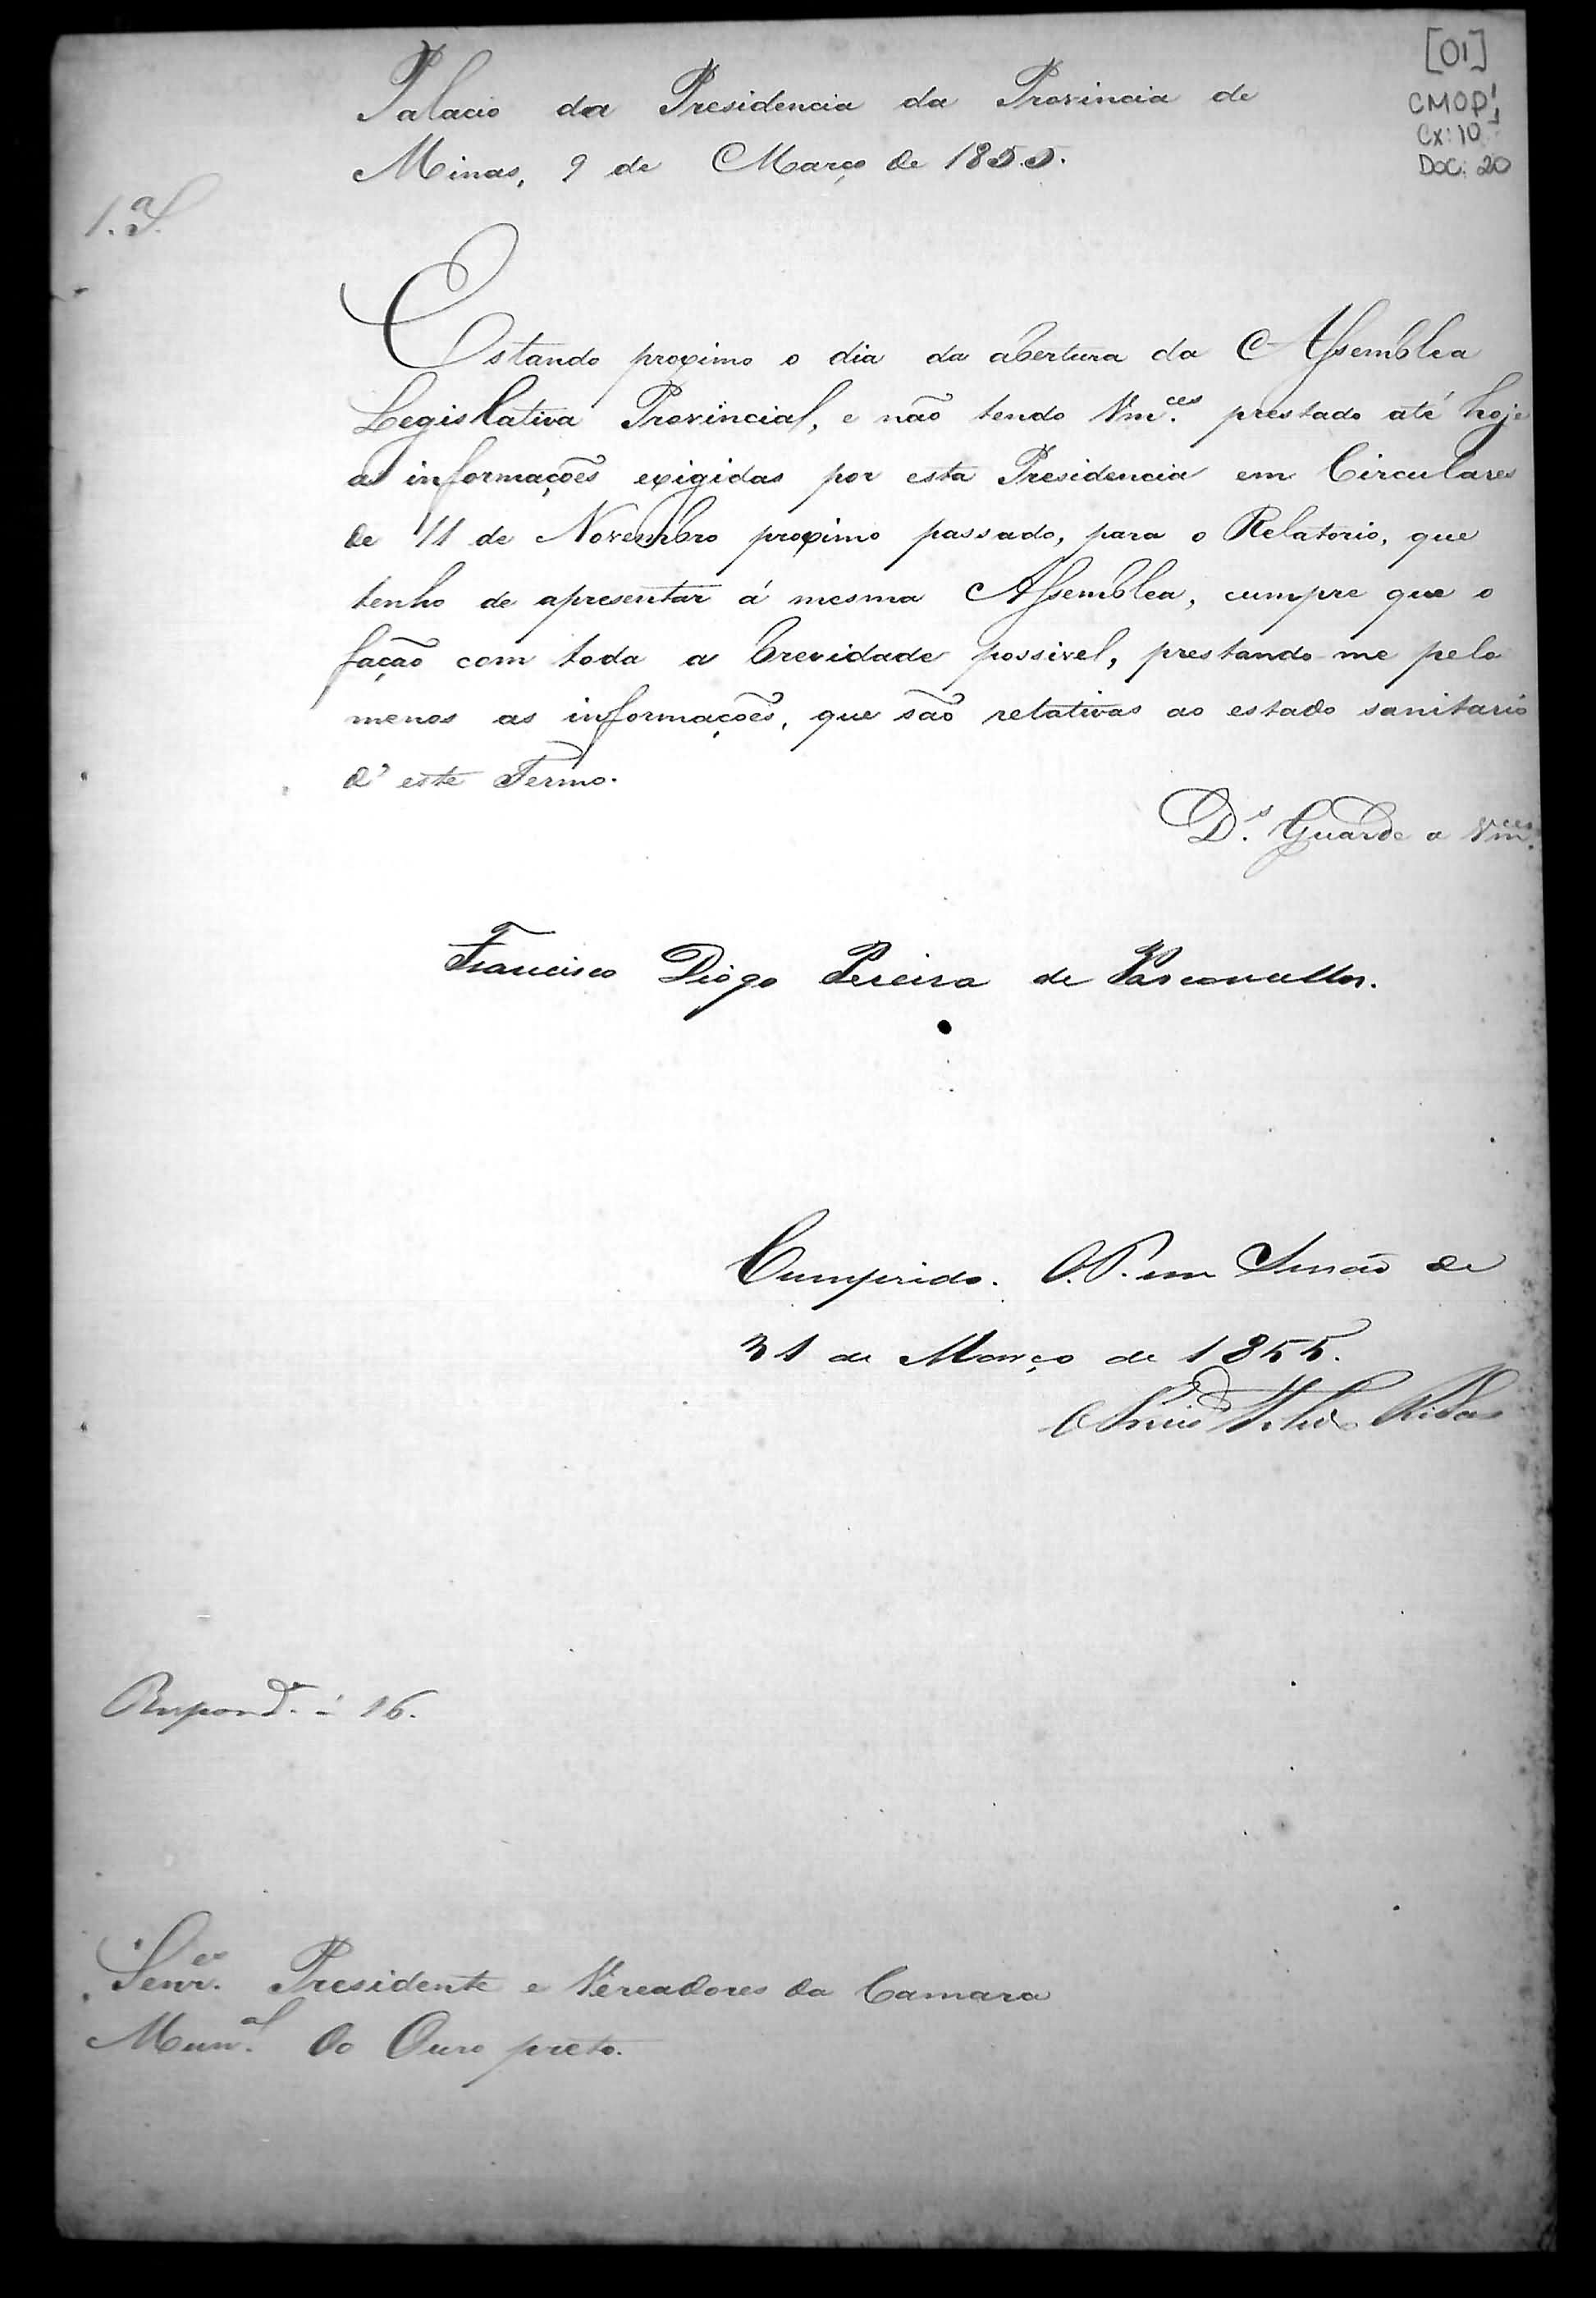 [01]
CMOP
Cx: 10
DOC: 20
Palacio da Presidencia da Provincia de
Minas, 9 de Março de 1855.
1.ª S.
Estando proximo o dia da abertura da Assemblea
Legislativa Provincial, e não tendo Vm.ces prestado até hoje
as informações exigidas por esta Presidencia em Circulares
de 11 de Novembro proximo passado, para o Relatorio, que
tenho de apresentar á mesma Assemblea, cumpre que o
fação com toda a brevidade possivel, prestando-me pelo
menos as informações, que são relativas ao estado sanitario
d'este Termo.
D.s Guarde a Vm.ces
Francisco Diogo Pereira de Vasconcellos.
Cumprido. O. P. em Sessão de
31 de Março de 1855.
Respond.º á 16.
Senr.es Presidente e Vereadores da Camara
Mun.al do Ouro preto.